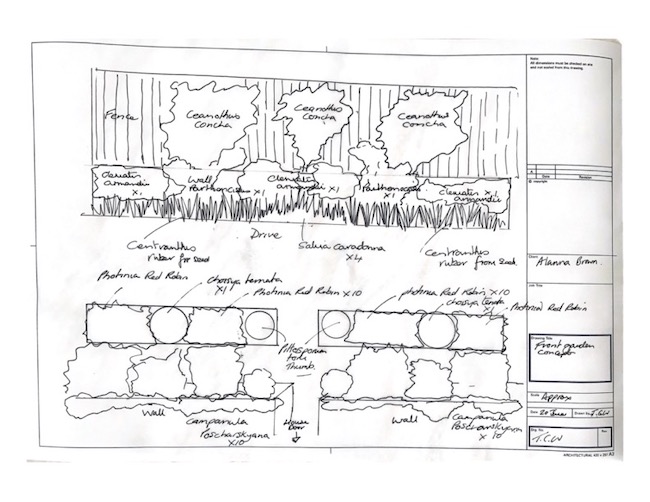 Note:
All dimensions must be checked on site
and not scaled from this drawing.
Fence
Ceanothus
Concha
Ceanothus
Concha
Ceanothus
Concha
Clematis
armandii
x1
Wall
Parthenocissus x1
Clematis
armandii
x1
Parthenocissus
x1
Clematis x1
armandii
Drive
Centranthus
ruber for seed
Salvia caradonna
x4
Centranthus
ruber from seed
Photinia Red Robin
choisya ternata
x1
Photinia Red Robin x10
photinia Red Robin x10
choisya ternata
x1
Photinia Red Robin
Pittosporum
tom
Thumb.
Wall
Campanula
Poscharskyana
x10
House
Door
Wall
Campanula
Poscharskyana
x10
Revision
© copyright
Client
Alanna Brown
Job Title
Drawing Title
Front garden
concept
Scale Approx
Date 20 June
Drawn by J.C.W
Drg. No.
Rev.
J.C.W